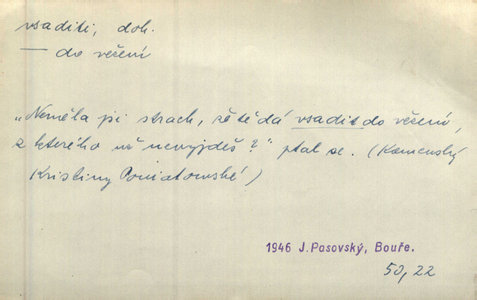 vsaditi, dok.
— do vězení
„Neměla jsi strach, že tě dá vsadit do vězení,
z kterého už nevyjdeš?" ptal se. (Komenský
Kristiny Poniatowské)
1946 J. Pasovský, Bouře.
50, 22